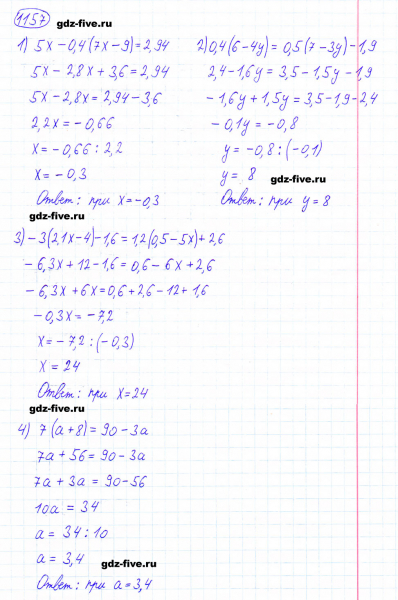 1157 gdz-five.ru
1) 5x - 0,4(7x - 9) = 2,94
5x - 2,8x + 3,6 = 2,94
5x - 2,8x = 2,94 - 3,6
2,2x = -0,66
x = -0,66 : 2,2
x = -0,3
Ответ: при x = -0,3
gdz-five.ru
2) 0,4(6 - 4y) = 0,5(7 - 3y) - 1,9
2,4 - 1,6y = 3,5 - 1,5y - 1,9
-1,6y + 1,5y = 3,5 - 1,9 - 2,4
-0,1y = -0,8
y = -0,8 : (-0,1)
y = 8 gdz-five.ru
Ответ: при y = 8
3) -3(2,1x - 4) - 1,6 = 1,2(0,5 - 5x) + 2,6
-6,3x + 12 - 1,6 = 0,6 - 6x + 2,6
-6,3x + 6x = 0,6 + 2,6 - 12 + 1,6
-0,3x = -7,2
x = -7,2 : (-0,3)
x = 24
Ответ: при x = 24
gdz-five.ru
4) 7(a + 8) = 90 - 3a
7a + 56 = 90 - 3a
7a + 3a = 90 - 56
10a = 34
a = 34 : 10
a = 3,4 gdz-five.ru
Ответ: при a = 3,4